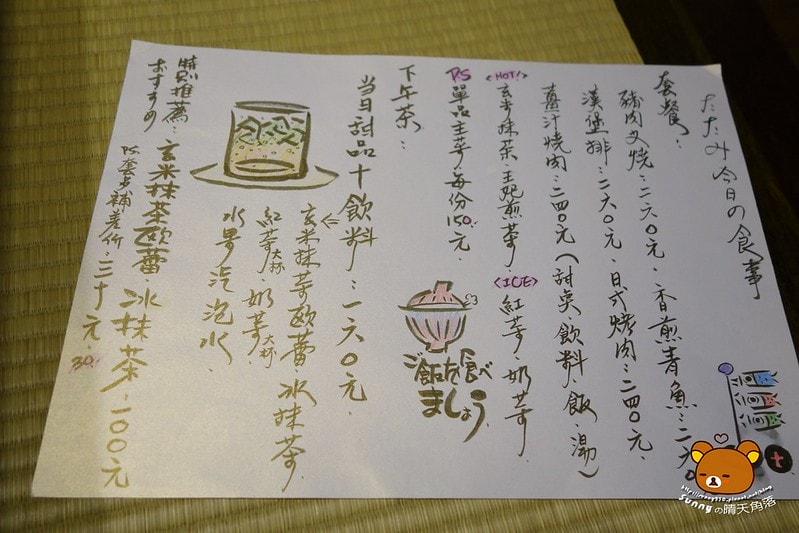 たたみ今日の食事
套餐：
豬肉叉燒：二六〇元、香煎青魚：二六〇
漢堡排：二六〇元、日式烤肉：二四〇元、
薑汁燒肉：二四〇元（甜點、飲料、飯、湯）
<HOT!>
玄米抹茶、王妃煎茶、
<ICE>
紅茶、奶茶、
P.S 單品主手每份150元、
ご飯を食べ
ましょう
下午茶：
當日甜品十飲料：一六〇元、
玄米抹茶歐蕾、冰抹茶、
紅茶大杯、奶茶大杯、
水果汽泡水、
特別推薦：玄米抹茶歐蕾、冰抹茶、一〇〇元
おすすめ
PS套餐補差價、三十元、
30.
Sunnyの晴天角落